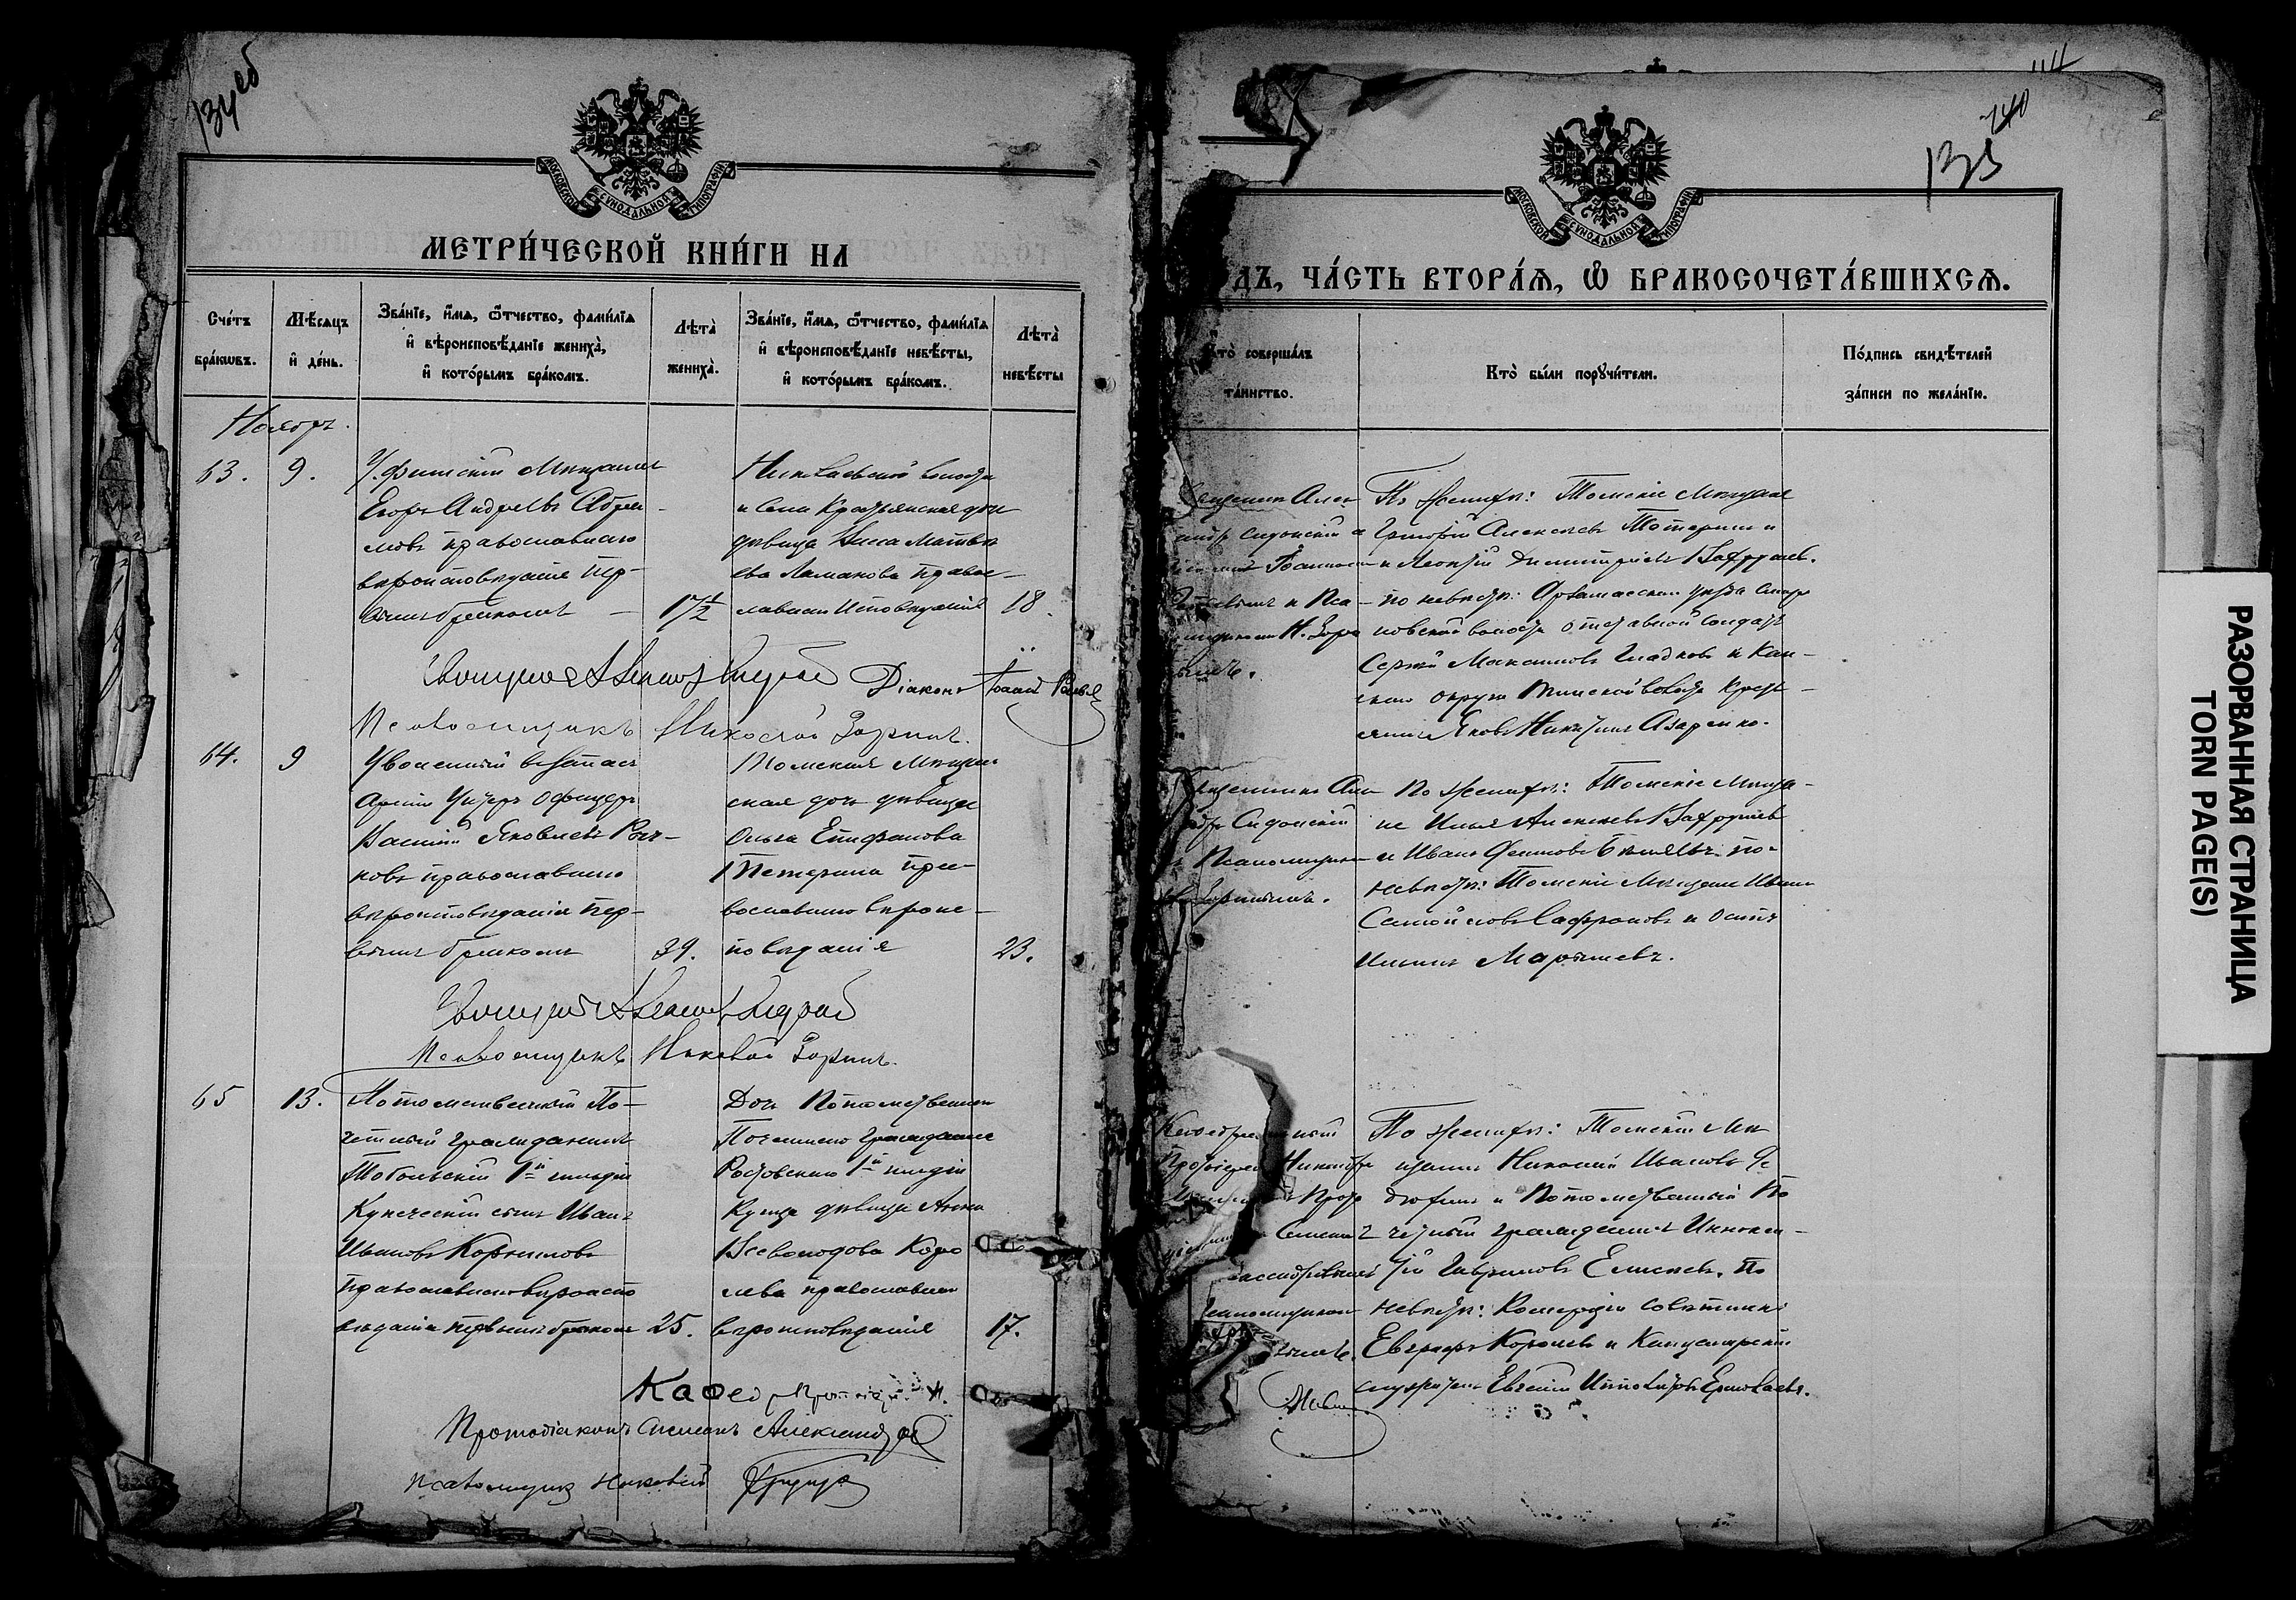 134 об
МОСКОВСКОЙ СУНОДАЛЬНОЙ ТИПОГРАФІИ
МЕТРИ́ЧЕСКОЙ КНИ́ГИ НА
Сче́тъ бра́кѡвъ.
Мѣ́сяцъ и҆ де́нь.
Зва́нїе, и҆́мѧ, ѻ҆́тчество, фамі́лїѧ
и҆ вѣроисповѣ́данїе жениха̀,
и҆ кото́рымъ бра́комъ.
Лѣта̀ жениха̀.
Зва́нїе, и҆́мѧ, ѻ҆́тчество, фамі́лїѧ
и҆ вѣроисповѣ́данїе невѣ́сты,
и҆ кото́рымъ бра́комъ.
Лѣта̀ невѣ́сты
Ноябрь.
63.
9.
Уфимскій Мѣщанинъ
Егоръ Андреевъ Абра-
мовъ православнаго
вѣроисповѣданія пер-
вымъ бракомъ
17½
Николаевской волости
и села Крестьянская дочь
дѣвица Анна Матвѣе-
ва Ламанова правос-
лавнаго исповѣданія
18.
Діаконъ Іоаннъ
Псаломщикъ Николай Зоринъ.
64.
9
Уволенный въ запасъ
Арміи Унтеръ Офицеръ
Василій Яковлевъ
ковъ православнаго
вѣроисповѣданія пер-
вымъ бракомъ
39.
Томская Мѣщан-
ская дочь дѣвица
Ольга Епифанова
Тетерина пра-
вославнаго вѣроис-
повѣданія
23.
Псаломщикъ Николай Зоринъ.
65
13.
Потомственный По-
четный Гражданинъ
Тобольскій 1й гильдіи
Купеческій сынъ Иванъ
Ивановъ Корниловъ
православнаго вѣроиспо
вѣданія первымъ бракомъ
25.
Дочь Потомственнаго
Почетнаго Гражданина
Ростовскаго 1й гильдіи
Купца дѣвица Анна
Всеволодова Коро
лева православнаго
вѣроисповѣданія
17.
Кафедр. Протоіерей Н.
Протодіаконъ Симеонъ Александров
Псаломщикъ Николай
114
140
135
МОСКОВСКОЙ СУНОДАЛЬНОЙ ТИПОГРАФІИ
ДЪ, ЧА́СТЬ ВТОРА́Ѧ, Ѽ БРАКОСОЧЕТА́ВШИХСѦ.
то̀ соверша́лъ та́инство.
Кто̀ бы́ли порꙋчи́тели.
По́дпись свидѣ́телей за́писи по жела́нїю.
Священникъ Алек-
сандръ Сидонскій
Іоанномъ
и Пса-
ломщикомъ Н. Зори
нымъ.
По женихѣ: Томскіе Мѣщане
Григорій Алексѣевъ Тетеринъ и
Леонтій Димитріевъ Вахрушев.
по невѣстѣ: Арзамасскаго уѣзда
новской волости отставной солдатъ
Сергѣй Максимовъ Гладковъ и Кан-
скаго округа волости кресть-
янинъ Яковъ Никитинъ Азаренко.
Священникъ Алек
сандръ Сидонскій
съ Псаломщикомъ
Зоринымъ.
По женихѣ: Томскіе Мѣща-
не Илья Алексѣевъ Вахрушевъ
и Иванъ по-
невѣстѣ: Томскіе Мѣщане Иванъ
Самойловъ Сафроновъ и Осипъ
Ильинъ Марышевъ.
Кафедральный
Протоіерей Никандръ
съ Прото
Симеон
Александровымъ
Псаломщикомъ
По женихѣ: Томскій Мѣ
щанинъ Николай Ивановъ
и Потомственный По
четный гражданинъ Иннокен-
тій Гавриловъ Елисѣев. По
невѣстѣ: Коммерціи совѣтникъ
Евграфъ Королевъ и Канцелярскій
служитель Евгеній Ипполитовъ Ермолаевъ.
РАЗОРВАННАЯ СТРАНИЦА
TORN PAGE(S)